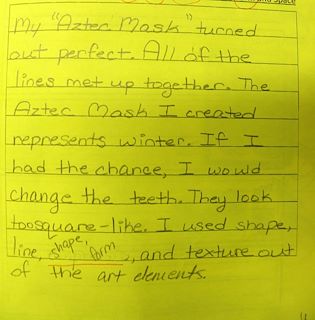 and Space
My "Aztec Mask" turned
out perfect. All of the
lines met up together. The
Aztec Mask I created
represents winter. If I
had the chance, I would
change the teeth. They look
toosquare-like. I used shape,
line, shape, form, and texture out
of the art elements.